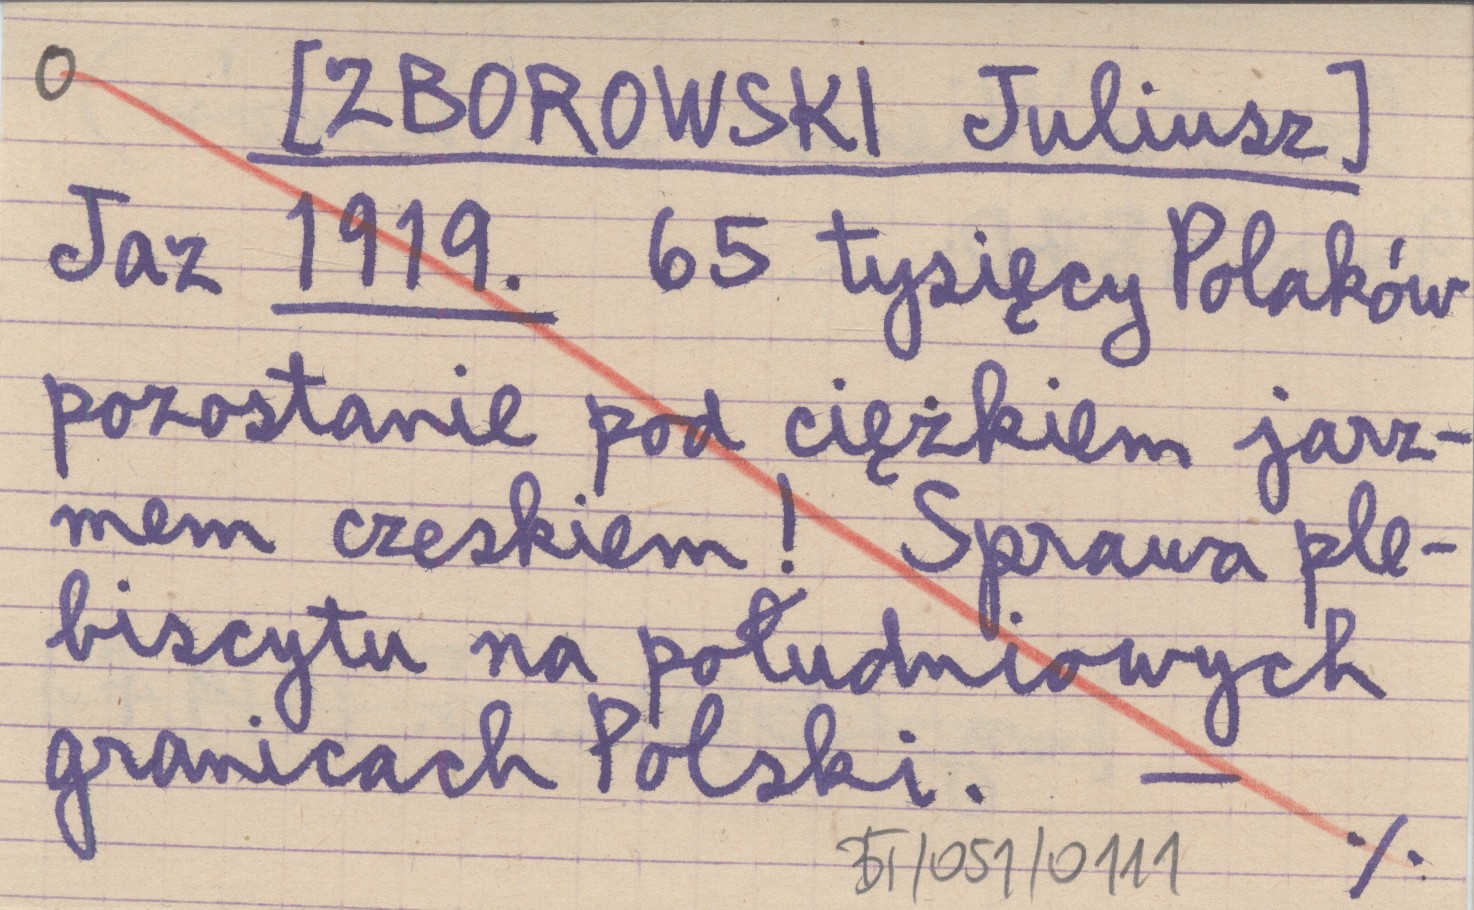 O [ZBOROWSKI Juliusz]
Jaz 1919. 65 tysięcy Polaków
pozostanie pod ciężkiem jarz-
mem czeskiem! Sprawa ple-
biscytu na południowych
granicach Polski. —
/051/0111 ·/·